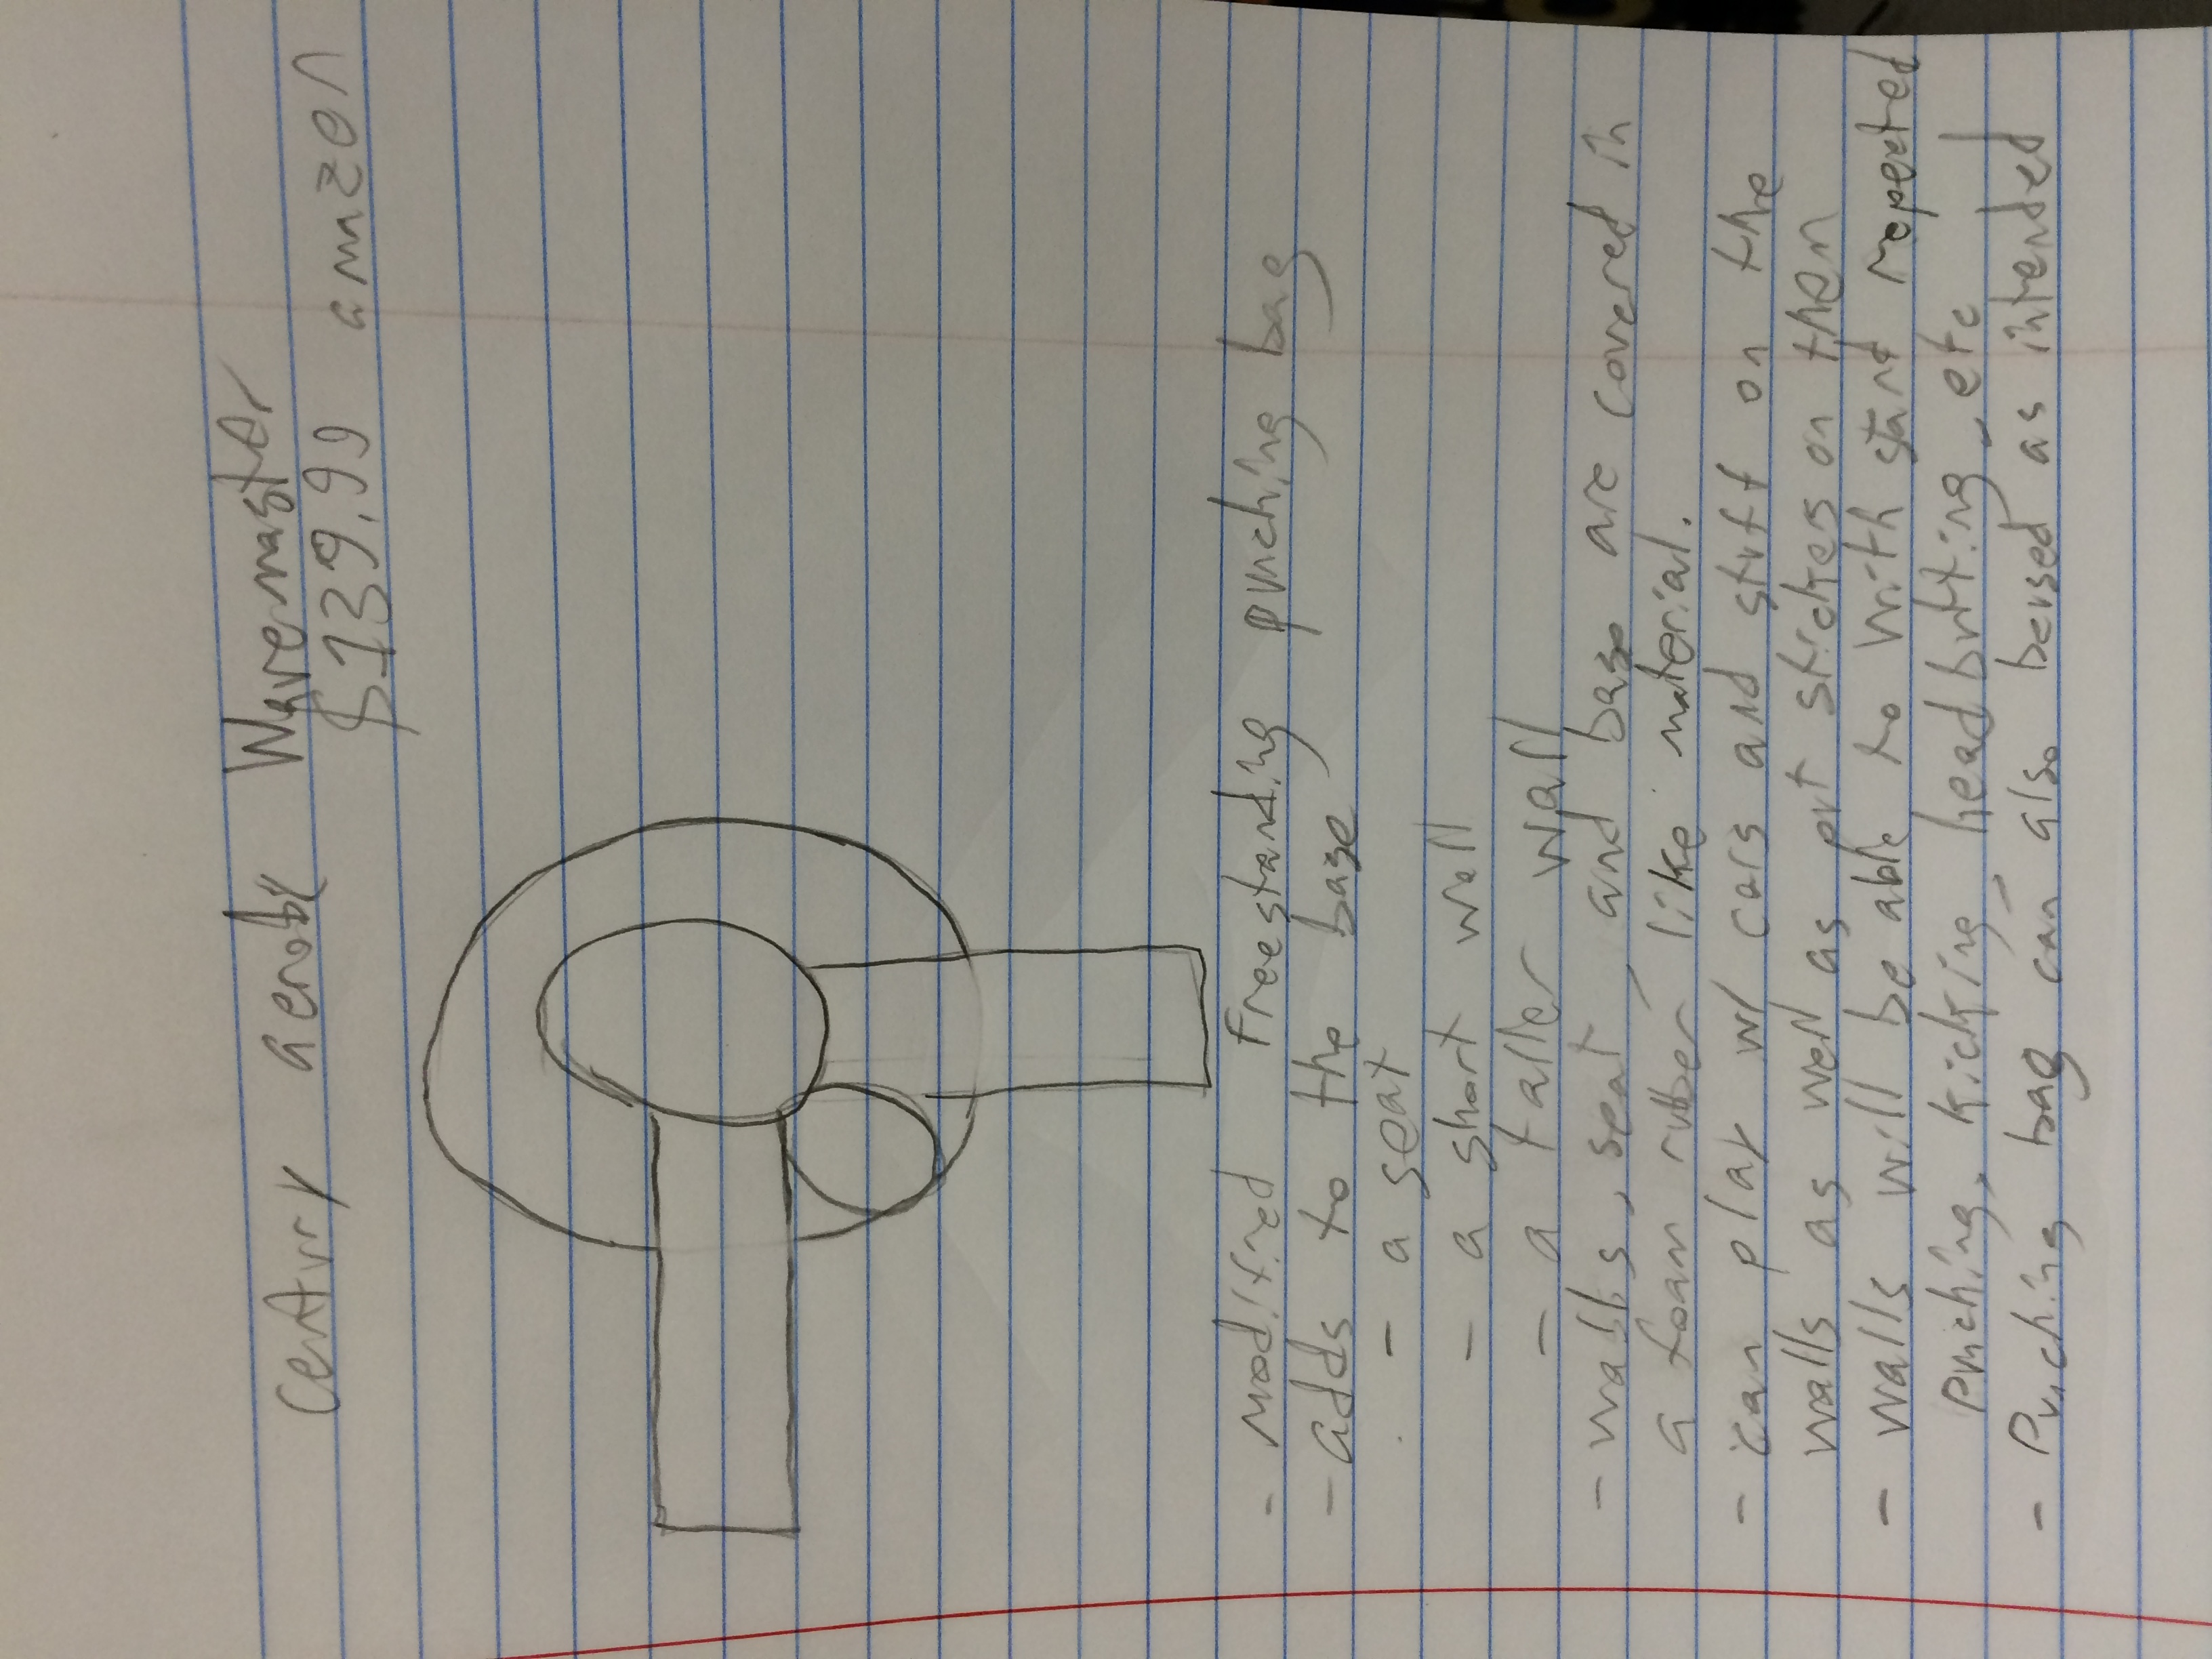 Century aerobic Wavemaster
$139.99 amazon
- modified freestanding punching bag
- adds to the base
- a seat
- a short wall
- a taller wall
- walls, seat, and base are covered in
a foam rubber like material.
- can play w/ cars and stuff on the
walls as well as put stickers on them
- walls will be able to with stand repeated
punching, kicking, headbutting, etc
- Punching bag can also be used as intended